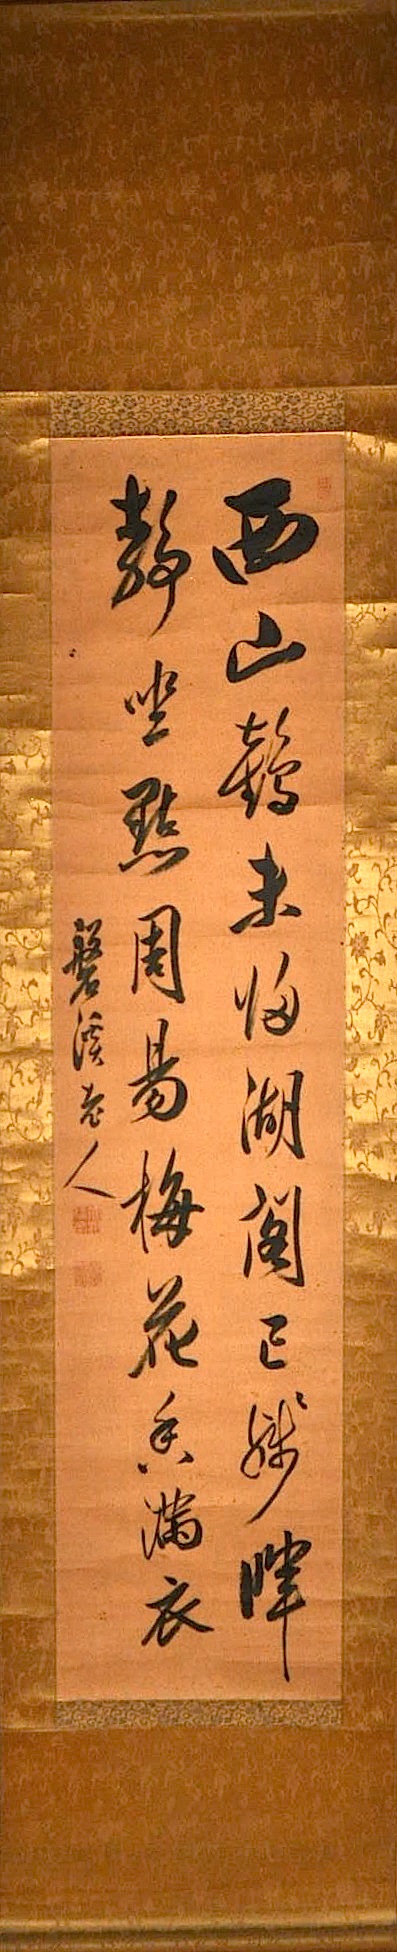 西山鶴未歸湖閣已殘暉
靜坐點周易梅花香滿衣
磐溪老人